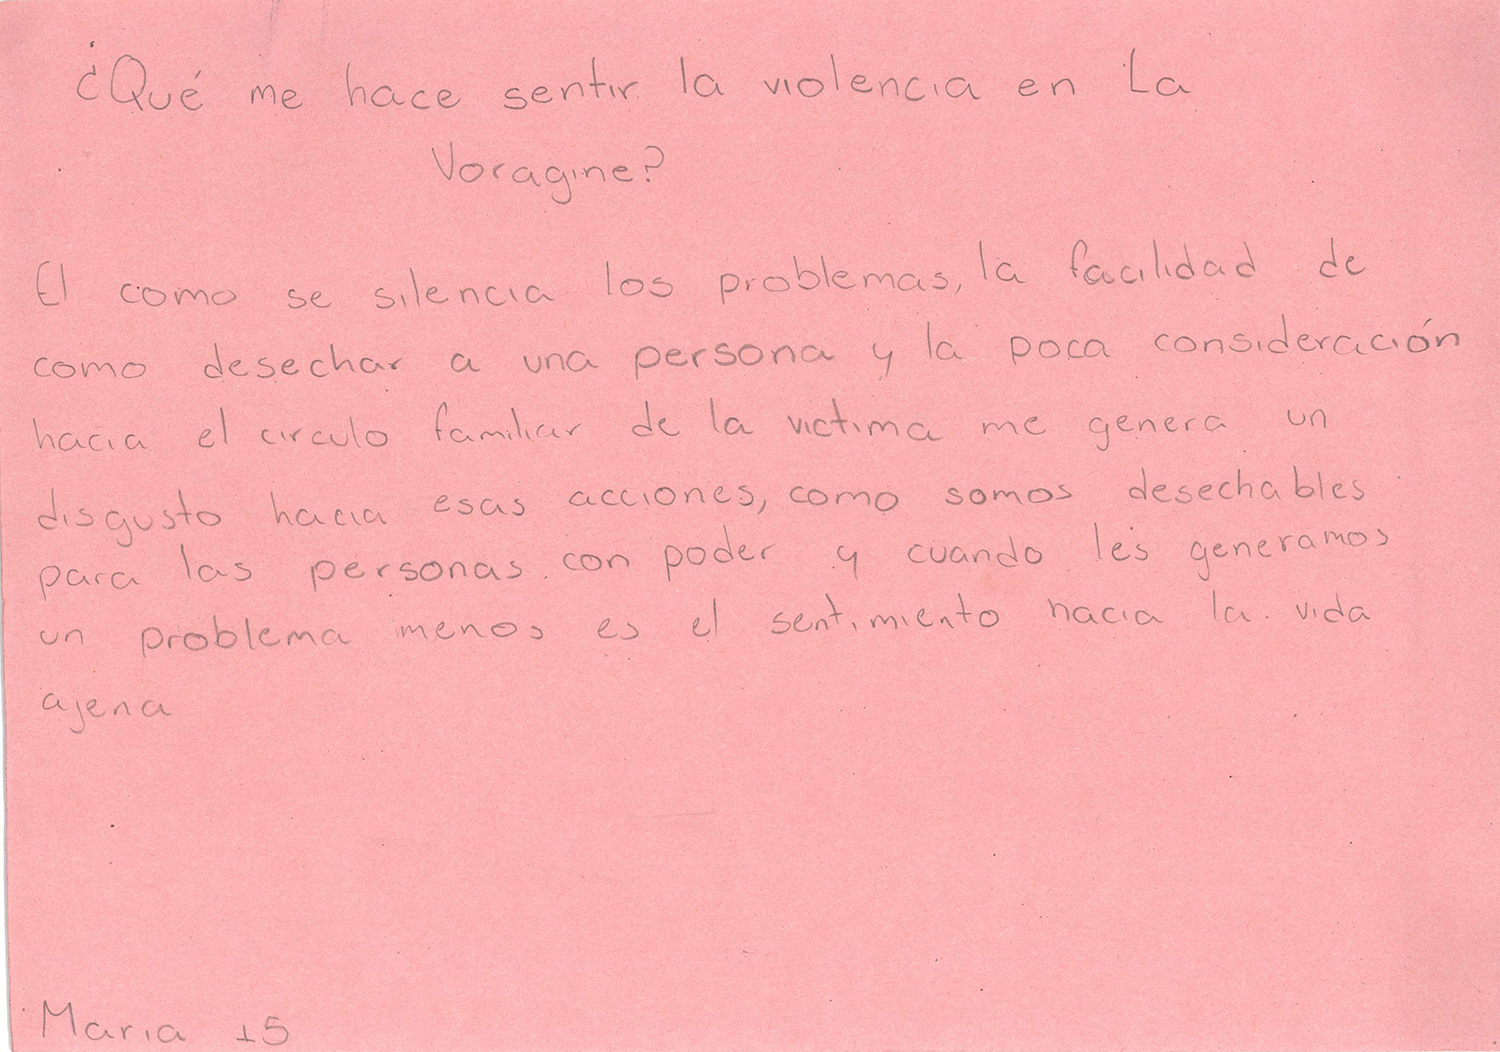 ¿Qué me hace sentir la violencia en La
Voragine?
El como se silencia los problemas, la facilidad de
como desechar a una persona y la poca consideración
hacia el circulo familiar de la victima me genera un
disgusto hacia esas acciones, como somos desechables
para las personas con poder y cuando les generamos
un problema menos es el sentimiento hacia la vida
ajena
Maria 15